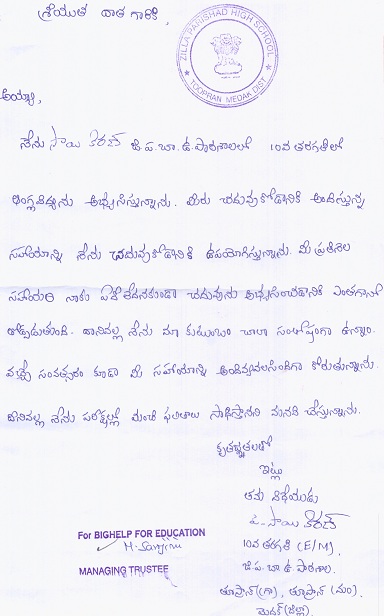 శ్రీయుత దాత గారికి,
ZILLA PARISHAD HIGH SCHOOL
★ TOOPRAN MEDAK DIST. ★
అయ్యా,
నేను సాయి కిరణ్ జి.ప.బా.ఉ.పాఠశాలలో 10వ తరగతిలో
అభ్యసిస్తున్నాను. మీరు చదువుకోడానికి అందిస్తున్న
సహాయాన్ని నేను చదువుకోడానికి ఉపయోగిస్తున్నాను. మీ ప్రతినెల
సహాయం నాకు ఏ లేకుండా చదువును అభ్యసించడానికి ఎంతగానో
తోడ్పడుతుంది. దానివల్ల నేను మా కుటుంబం చాలా సంతోషంగా ఉన్నాం.
వచ్చే సంవత్సరం కూడా మీ సహాయాన్ని అందివ్వవలసిందిగా కోరుతున్నాను.
దానివల్ల నేను పరీక్షల్లో మంచి ఫలితాలు సాధిస్తానని మనవి చేస్తున్నాను.
కృతజ్ఞతలతో
ఇట్లు
తమ విధేయుడు
ప. సాయి కిరణ్
10వ తరగతి (E/M),
జి.ప.బా.ఉ పాఠశాల.
తూప్రాన్ (గ్రా), తూప్రాన్ (మం).
మెదక్ (జిల్లా).
For BIGHELP FOR EDUCATION
MANAGING TRUSTEE